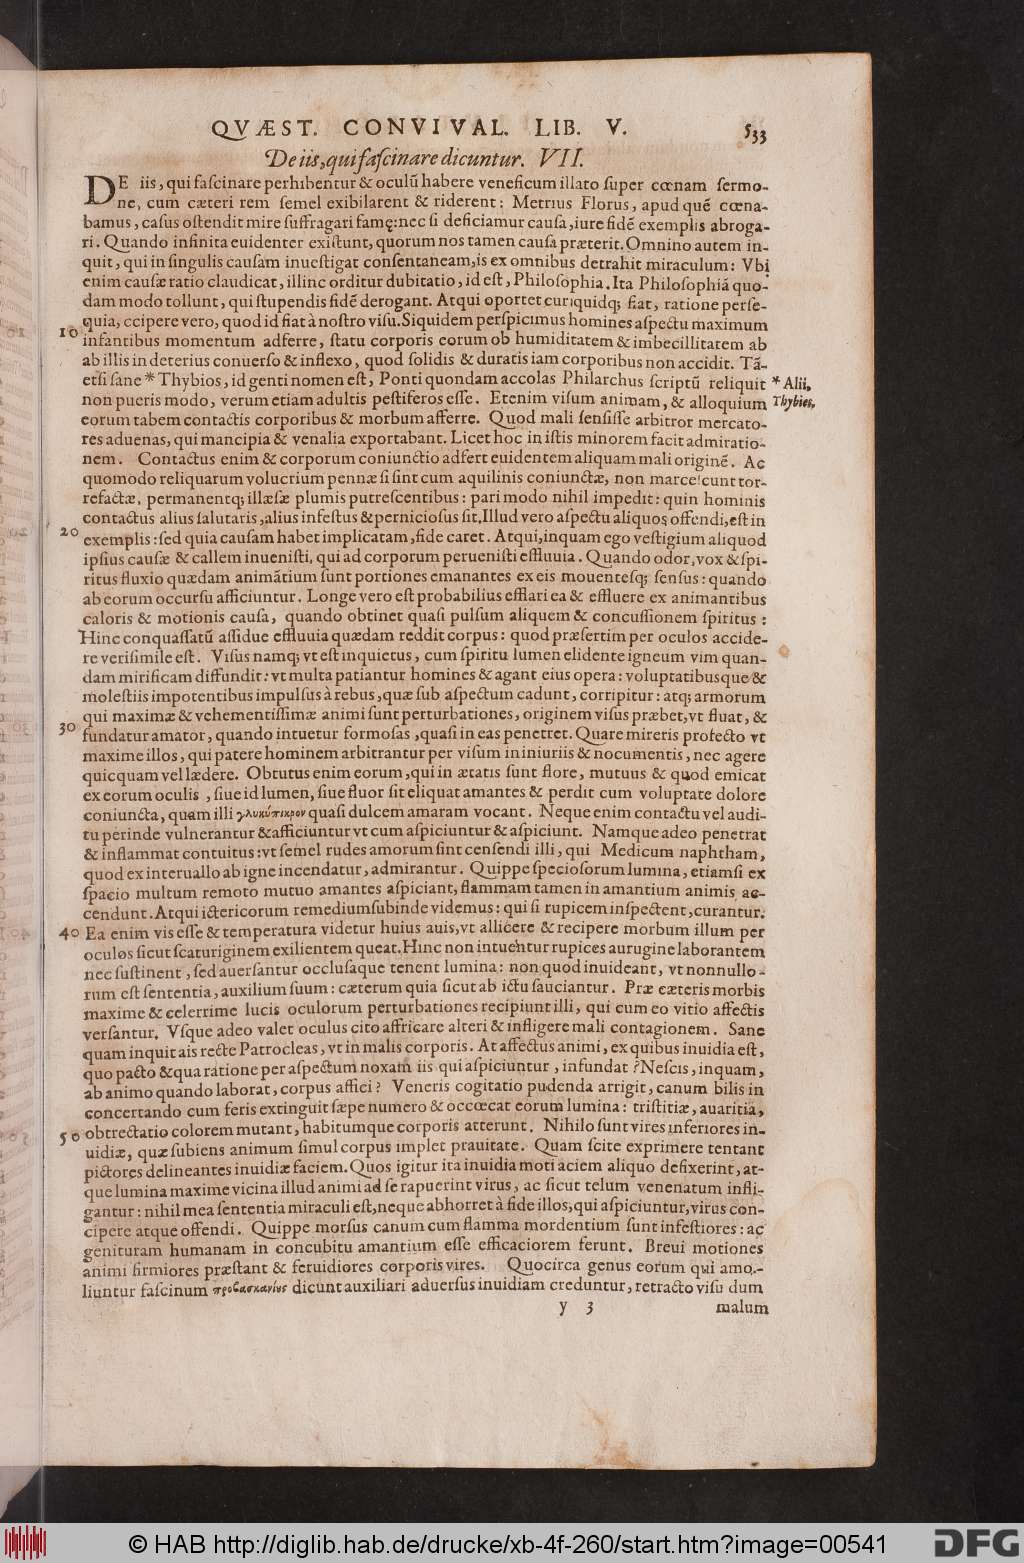 QVÆST. CONVIVAL. LIB. V. 533
De iis, qui faſcinare dicuntur. VII.
DE iis, qui faſcinare perhibentur & oculũ habere veneficum illato ſuper cœnam ſermo-
ne, cum cæteri rem ſemel exibilarent & riderent: Metrius Florus, apud quẽ cœna-
bamus, caſus oſtendit mire ſuffragari famę: nec ſi deficiamur cauſa, iure fidẽ exemplis abroga-
ri. Quando infinita euidenter exiſtunt, quorum nos tamen cauſa præterit. Omnino autem in-
quit, qui in ſingulis cauſam inueſtigat conſentaneam, is ex omnibus detrahit miraculum: Vbi
enim cauſæ ratio claudicat, illinc orditur dubitatio, id eſt, Philoſophia. Ita Philoſophiã quo-
dam modo tollunt, qui ſtupendis fidẽ derogant. Atqui oportet cur quidq; fiat, ratione perſe-
quia, ccipere vero, quod id fiat à noſtro viſu. Siquidem perſpicimus homines aſpectu maximum
10 infantibus momentum adferre, ſtatu corporis eorum ob humiditatem & imbecillitatem ab
ab illis in deterius conuerſo & inflexo, quod ſolidis & duratis iam corporibus non accidit. Tã-
etſi ſane * Thybios, id genti nomen eſt, Ponti quondam accolas Philarchus ſcriptũ reliquit * Alii,
non pueris modo, verum etiam adultis peſtiferos eſſe. Etenim viſum animam, & alloquium Thybies,
eorum tabem contactis corporibus & morbum afferre. Quod mali ſenſiſſe arbitror mercato-
res aduenas, qui mancipia & venalia exportabant. Licet hoc in iſtis minorem facit admiratio-
nem. Contactus enim & corporum coniunctio adfert euidentem aliquam mali originẽ. Ac
quomodo reliquarum volucrium pennæ ſi ſint cum aquilinis coniunctæ, non marceſcunt tor-
refactæ, permanentq; illæſæ plumis putreſcentibus: pari modo nihil impedit: quin hominis
contactus alius ſalutaris, alius infeſtus & pernicioſus ſit. Illud vero aſpectu aliquos offendi, eſt in
20 exemplis: ſed quia cauſam habet implicatam, fide caret. Atqui, inquam ego veſtigium aliquod
ipſius cauſæ & callem inueniſti, qui ad corporum perueniſti effluuia. Quando odor, vox & ſpi-
ritus fluxio quædam animãtium ſunt portiones emanantes ex eis mouentesq; ſenſus: quando
ab eorum occurſu afficiuntur. Longe vero eſt probabilius efflari ea & effluere ex animantibus
caloris & motionis cauſa, quando obtinet quaſi pulſum aliquem & concuſſionem ſpiritus:
Hinc conquaſſatũ aſſidue effluuia quædam reddit corpus: quod præſertim per oculos accide-
re veriſimile eſt. Viſus namq; vt eſt inquietus, cum ſpiritu lumen elidente igneum vim quan-
dam mirificam diffundit: vt multa patiantur homines & agant eius opera: voluptatibusque &
moleſtiis impotentibus impulſus à rebus, quæ ſub aſpectum cadunt, corripitur: atq; armorum
qui maximæ & vehementiſſimæ animi ſunt perturbationes, originem viſus præbet, vt fluat, &
30 fundatur amator, quando intuetur formoſas, quaſi in eas penetret. Quare mireris profecto vt
maxime illos, qui patere hominem arbitrantur per viſum in iniuriis & nocumentis, nec agere
quicquam vel lædere. Obtutus enim eorum, qui in ætatis ſunt flore, mutuus & quod emicat
ex eorum oculis, ſiue id lumen, ſiue fluor ſit eliquat amantes & perdit cum voluptate dolore
coniuncta, quam illi γλυκύπικρον quaſi dulcem amaram vocant. Neque enim contactu vel audi-
tu perinde vulnerantur & afficiuntur vt cum aſpiciuntur & aſpiciunt. Namque adeo penetrat
& inflammat contuitus: vt ſemel rudes amorum ſint cenſendi illi, qui Medicum naphtham,
quod ex interuallo ab igne incendatur, admirantur. Quippe ſpecioſorum lumina, etiamſi ex
ſpacio multum remoto mutuo amantes aſpiciant, flammam tamen in amantium animis ac-
cendunt. Atqui ictericorum remedium ſubinde videmus: qui ſi rupicem inſpectent, curantur.
40 Ea enim vis eſſe & temperatura videtur huius auis, vt allicere & recipere morbum illum per
oculos ſicut ſcaturiginem exilientem queat. Hinc non intuentur rupices aurugine laborantem
nec ſuſtinent, ſed auerſantur occluſaque tenent lumina: non quod inuideant, vt nonnullo-
rum eſt ſententia, auxilium ſuum: cæterum quia ſicut ab ictu ſauciantur. Præ cæteris morbis
maxime & celerrime lucis oculorum perturbationes recipiunt illi, qui cum eo vitio affectis
verſantur. Vſque adeo valet oculus cito affricare alteri & infligere mali contagionem. Sane
quam inquit ais recte Patrocleas, vt in malis corporis. At affectus animi, ex quibus inuidia eſt,
quo pacto & qua ratione per aſpectum noxam iis qui aſpiciuntur, infundat? Neſcis, inquam,
ab animo quando laborat, corpus affici? Veneris cogitatio pudenda arrigit, canum bilis in
concertando cum feris extinguit ſæpe numero & occœcat eorum lumina: triſtitiæ, auaritia,
50 obtrectatio colorem mutant, habitumque corporis atterunt. Nihilo ſunt vires inferiores in-
uidiæ, quæ ſubiens animum ſimul corpus implet prauitate. Quam ſcite exprimere tentant
pictores delineantes inuidiæ faciem. Quos igitur ita inuidia moti aciem aliquo defixerint, at-
que lumina maxime vicina illud animi ad ſe rapuerint virus, ac ſicut telum venenatum infli-
gantur: nihil mea ſententia miraculi eſt, neque abhorret à fide illos, qui aſpiciuntur, virus con-
cipere atque offendi. Quippe morſus canum cum flamma mordentium ſunt infeſtiores: ac
genituram humanam in concubitu amantium eſſe efficaciorem ferunt. Breui motiones
animi firmiores præſtant & feruidiores corporis vires. Quocirca genus eorum qui amo-
liuntur faſcinum προβασκανίας dicunt auxiliari aduerſus inuidiam creduntur, retracto viſu dum
y 3 malum
© HAB http://diglib.hab.de/drucke/xb-4f-260/start.htm?image=00541
DFG